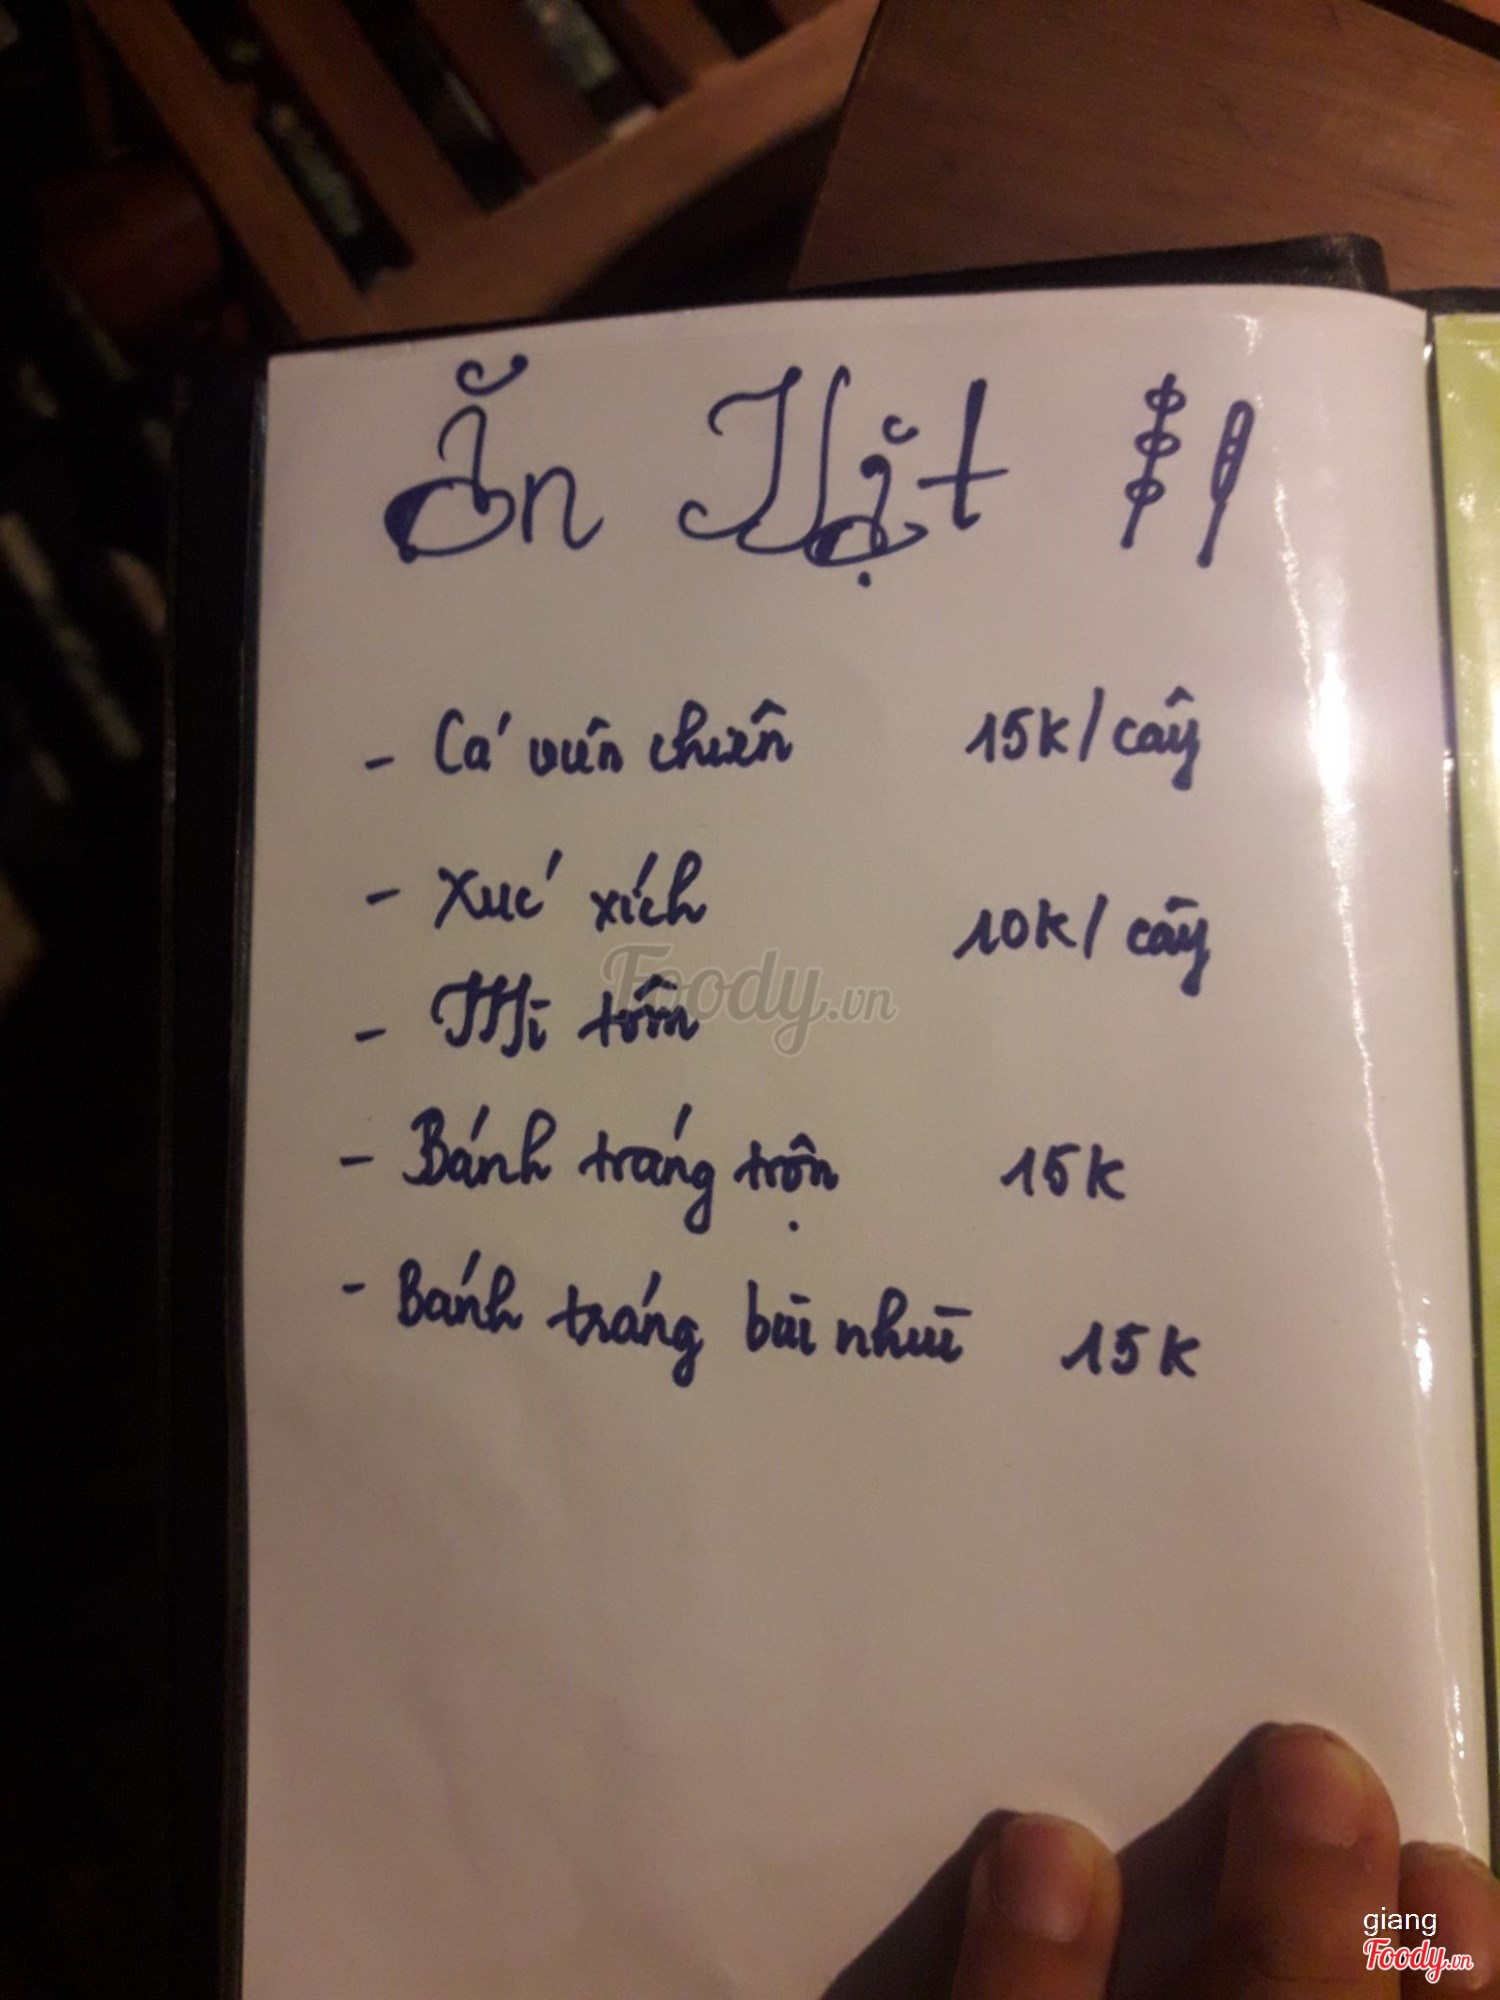 Ăn Vặt
- Cá viên chiên 15K/cây
- Xúc xích 10K/cây
- Mì tôm
- Bánh tráng trộn 15K
- Bánh tráng bùi nhùi 15K
Foody.vn
giang
Foody.vn